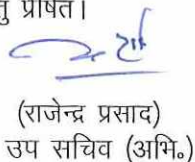 तु प्रेषित।
(राजेन्द्र प्रसाद)
उप सचिव (अभि०)